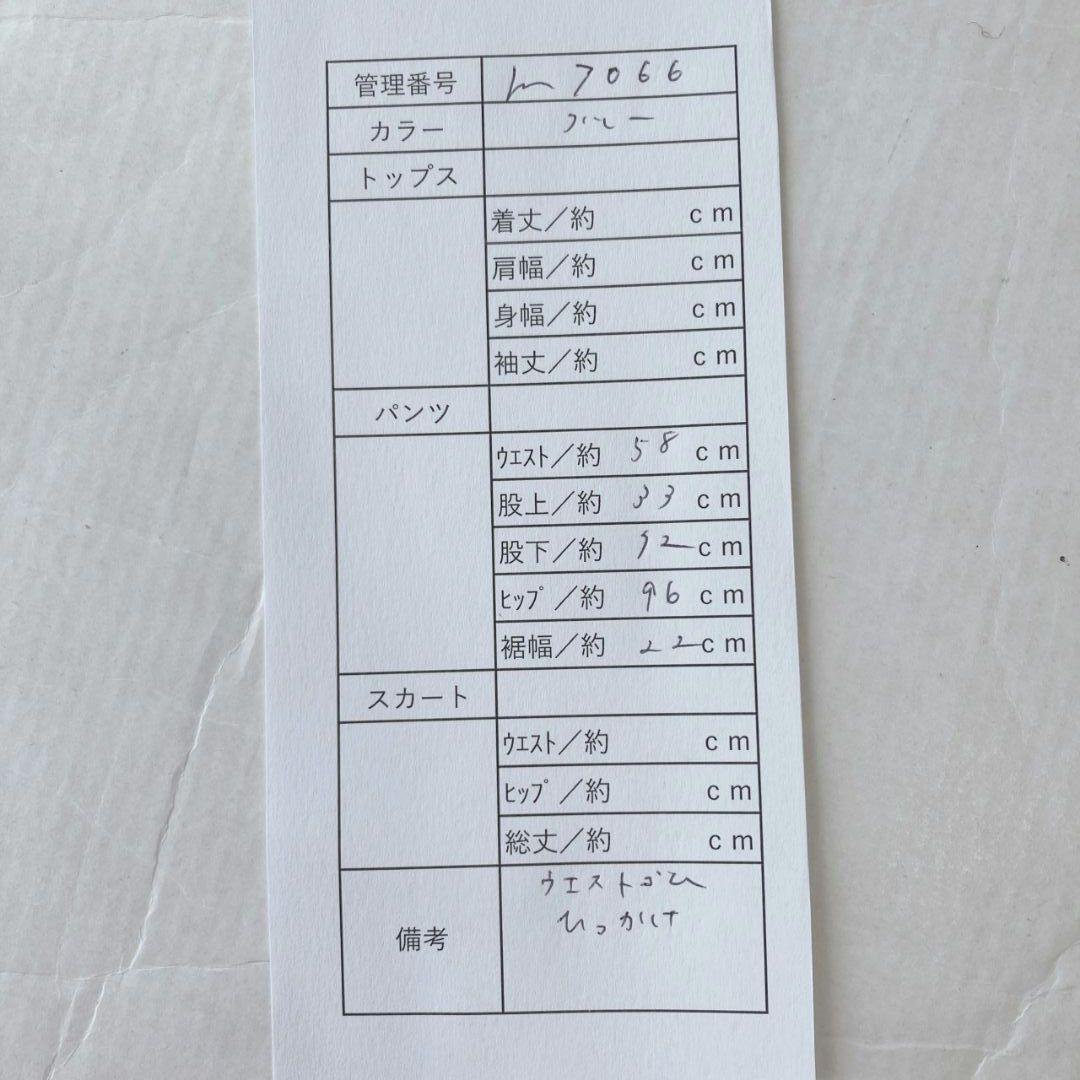 管理番号 m7066
カラー ブルー
トップス
着丈／約 cm
肩幅／約 cm
身幅／約 cm
袖丈／約 cm
パンツ
ウエスト／約 58 cm
股上／約 33 cm
股下／約 cm
ヒップ／約 96 cm
裾幅／約 22 cm
スカート
ウエスト／約 cm
ヒップ／約 cm
総丈／約 cm
ウエストゴム
備考
ひっかけ